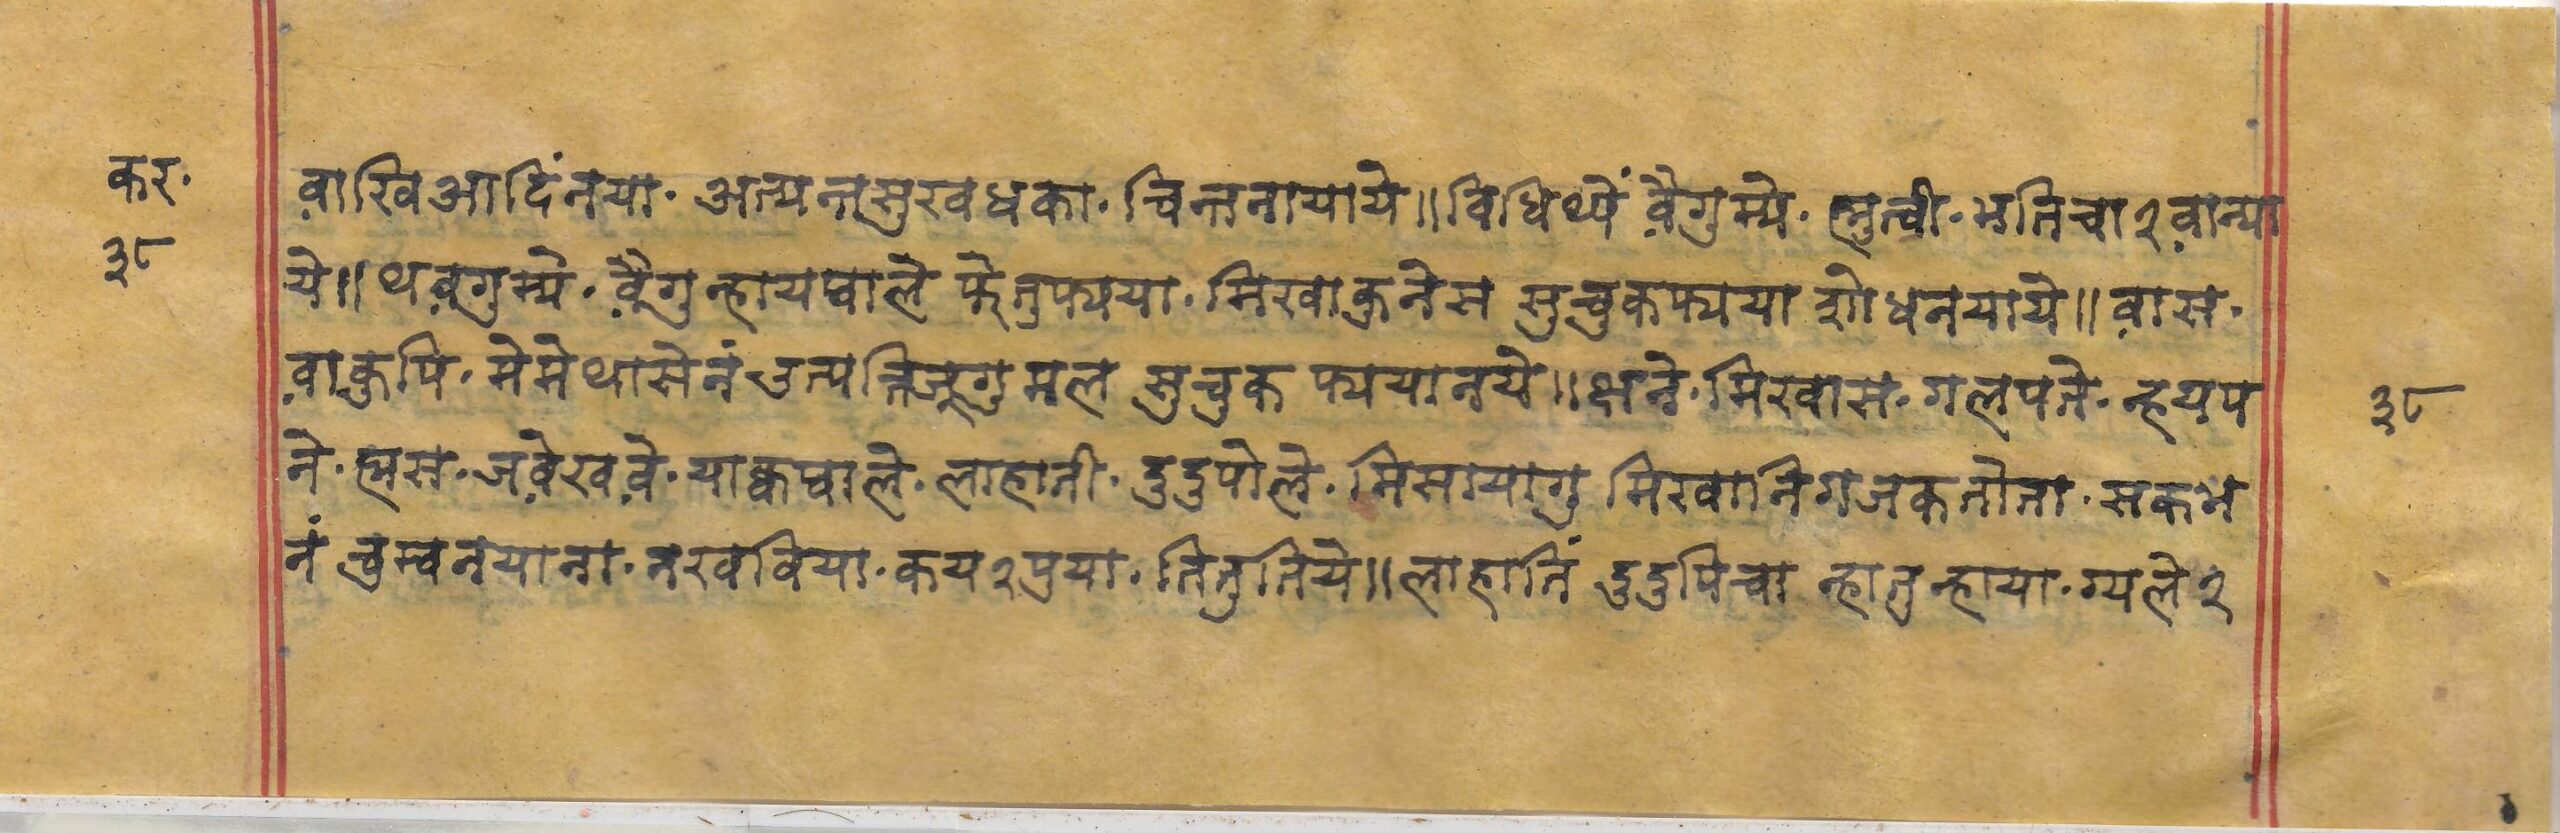 कर॰
३८
व़ाखिआदिंनया॰ अत्यन्तसुखधका॰ चिन्तनायाये॥ विधिथ्यें व़ैगुम्ये॰ स्तुत्वी॰ भतिचा२व़ान्या
ये॥ थव़्गुम्ये॰ व़ैगु न्हायघाले फेतुफ्यया॰ मिखाकुनेस सुचुकफ्यया शोधनयाये॥ व़ास॰
व़ाकुपि॰ मेमेथासेनं उत्पत्तिजूगु मल सुचुक फ्ययानये॥ क्षने॰ मिखास॰ गलपते॰ न्हयप
ने॰ ह्मस॰ जव़ेखव़े॰ याकघाले॰ लाहाती॰ दुदुपोले॰ मिसायागु मिखानिगजकतोता॰ सकभ
नं चुम्बनयाना॰ नखविया॰ कय२पुया॰ तितुतिये॥ लाहातिं दुदुपिचा न्हातुन्हाया॰ ग्यले२
३८